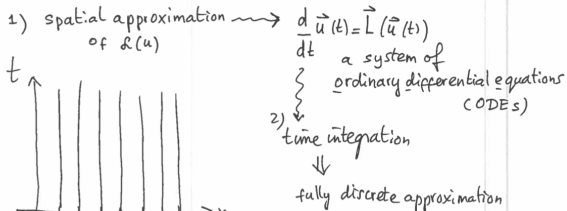 1) spatial approximation ⟶ d/dt u⃗(t) = L⃗(u⃗(t))
of ℒ(u)
a system of
ordinary differential equations
(ODEs)
t
2)
time integration
⇓
fully discrete approximation